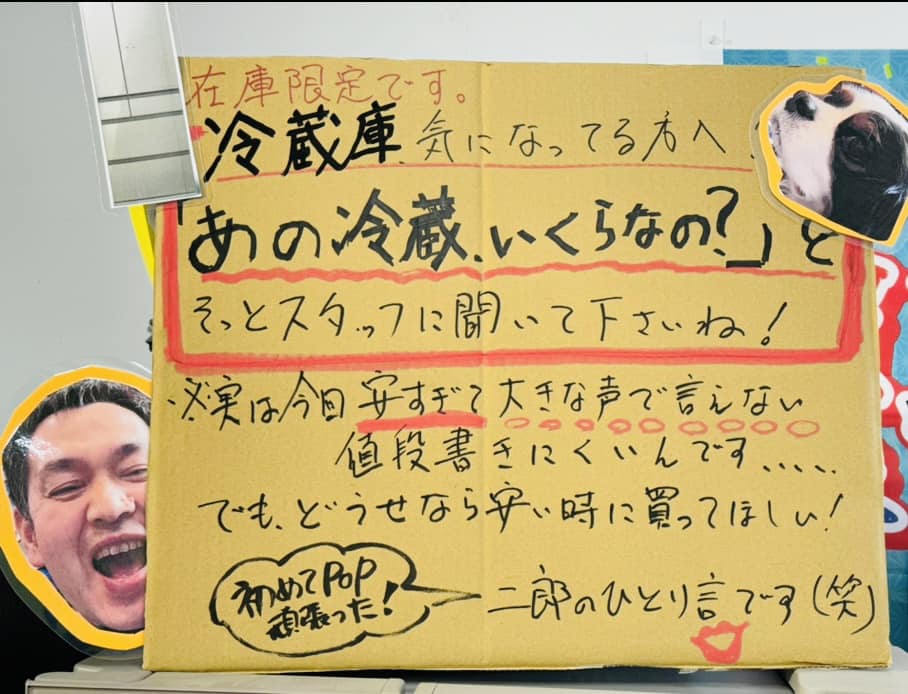 在庫限定です。
冷蔵庫、気になってる方へ、
「あの冷蔵、いくらなの?」と
そっとスタッフに聞いて下さいね!
※実は今回安すぎて大きな声で言えない
値段書きにくいんです、、、、、
でも、どうせなら安い時に買ってほしい!
初めてPOP
頑張った!
二郎のひとり言です(笑)